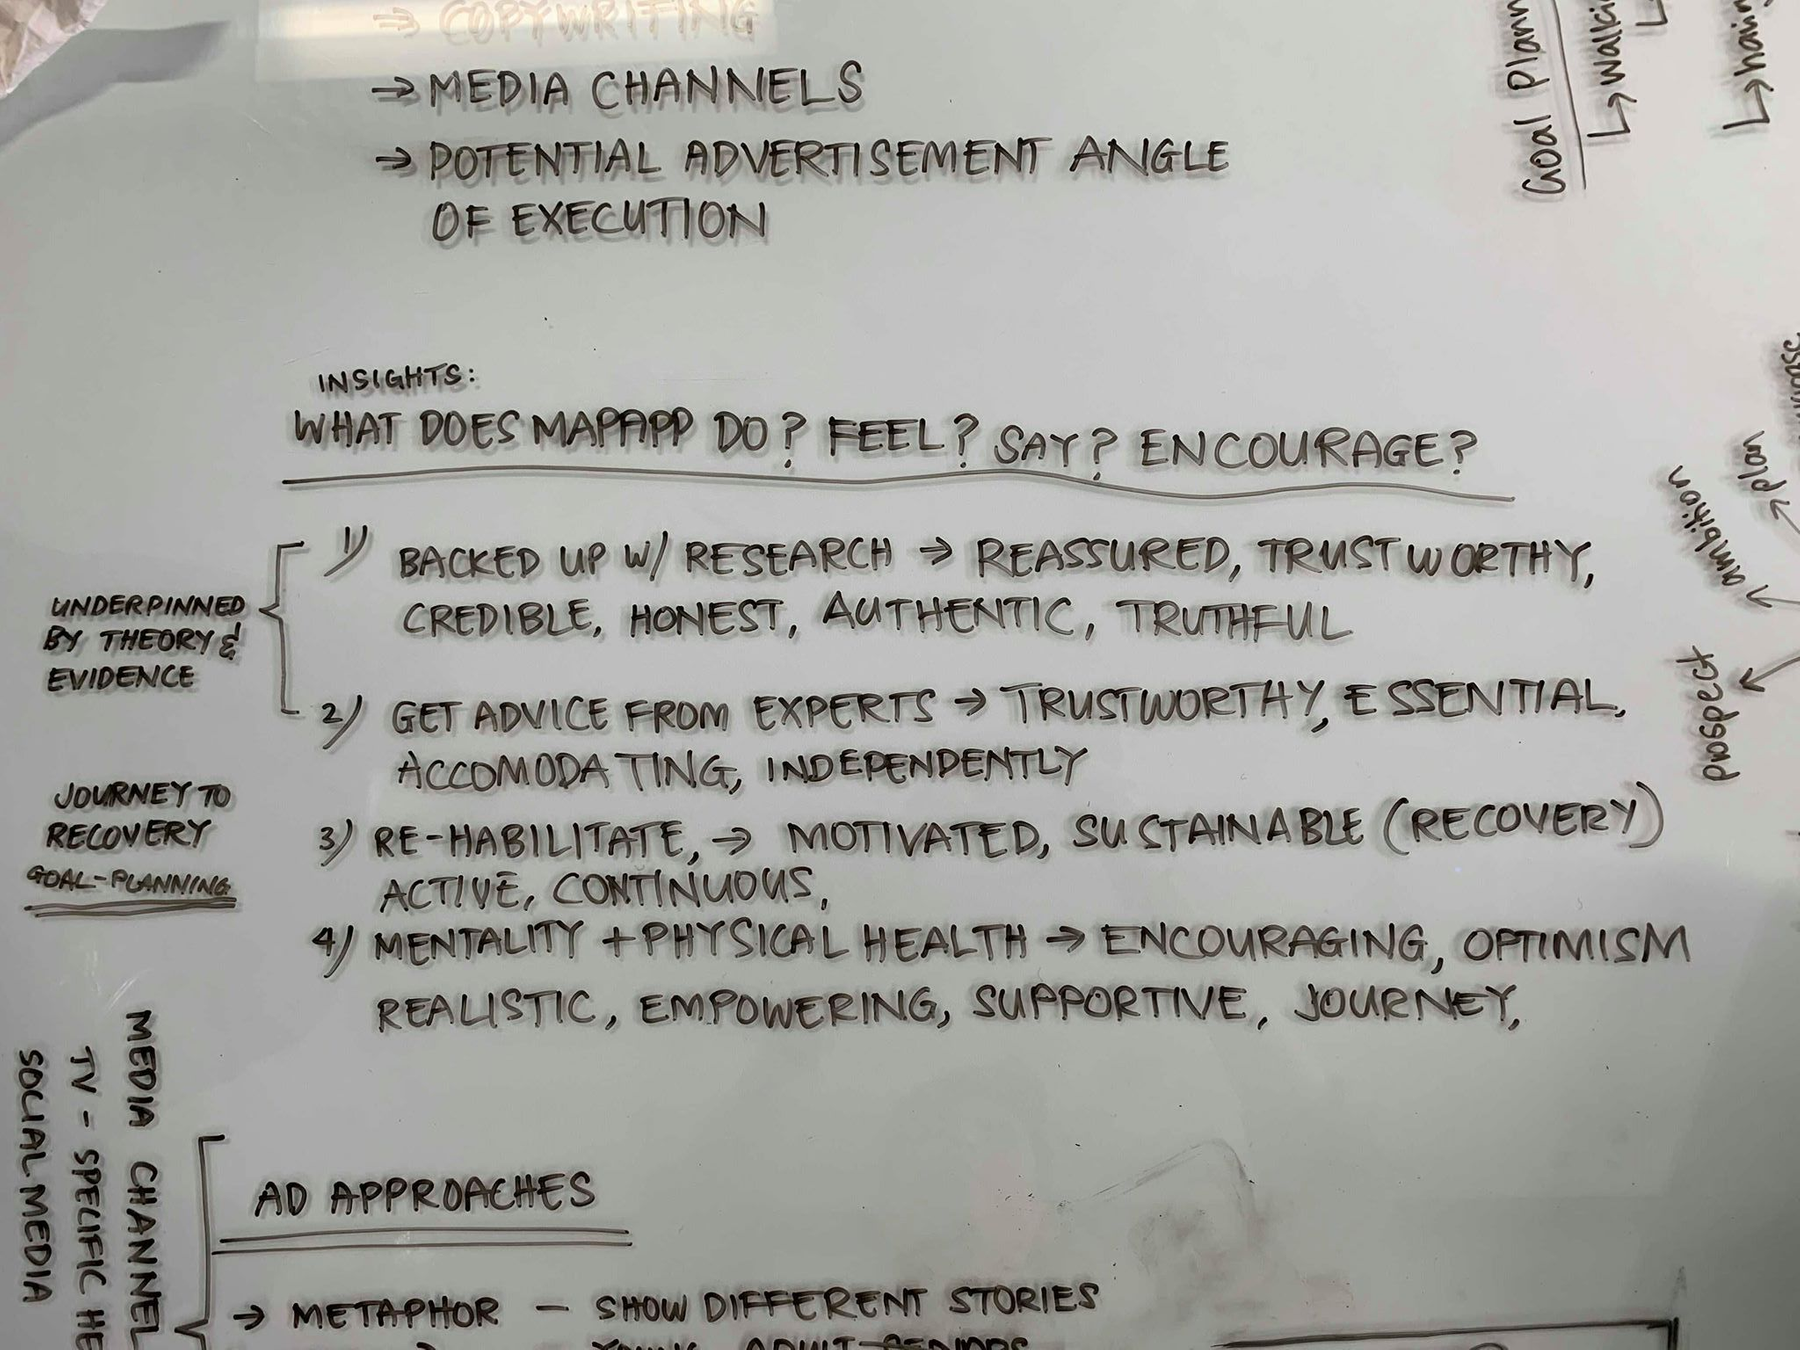 → COPYWRITING
→ MEDIA CHANNELS
→ POTENTIAL ADVERTISEMENT ANGLE
OF EXECUTION
INSIGHTS:
WHAT DOES MAPAPP DO? FEEL? SAY? ENCOURAGE?
UNDERPINNED
BY THEORY &
EVIDENCE
1) BACKED UP W/ RESEARCH → REASSURED, TRUSTWORTHY,
CREDIBLE, HONEST, AUTHENTIC, TRUTHFUL
2) GET ADVICE FROM EXPERTS → TRUSTWORTHY, ESSENTIAL,
ACCOMODATING, INDEPENDENTLY
JOURNEY TO
RECOVERY
GOAL-PLANNING
3) RE-HABILITATE, → MOTIVATED, SUSTAINABLE (RECOVERY)
ACTIVE, CONTINUOUS,
4) MENTALITY + PHYSICAL HEALTH → ENCOURAGING, OPTIMISM
REALISTIC, EMPOWERING, SUPPORTIVE, JOURNEY,
MEDIA CHANNEL
TV - SPECIFIC HE
SOCIAL MEDIA
AD APPROACHES
→ METAPHOR — SHOW DIFFERENT STORIES
YOUNG, ADULT, SENIORS
Goal Plann
↳ walki
→ plan
→ ambition
→ prospect